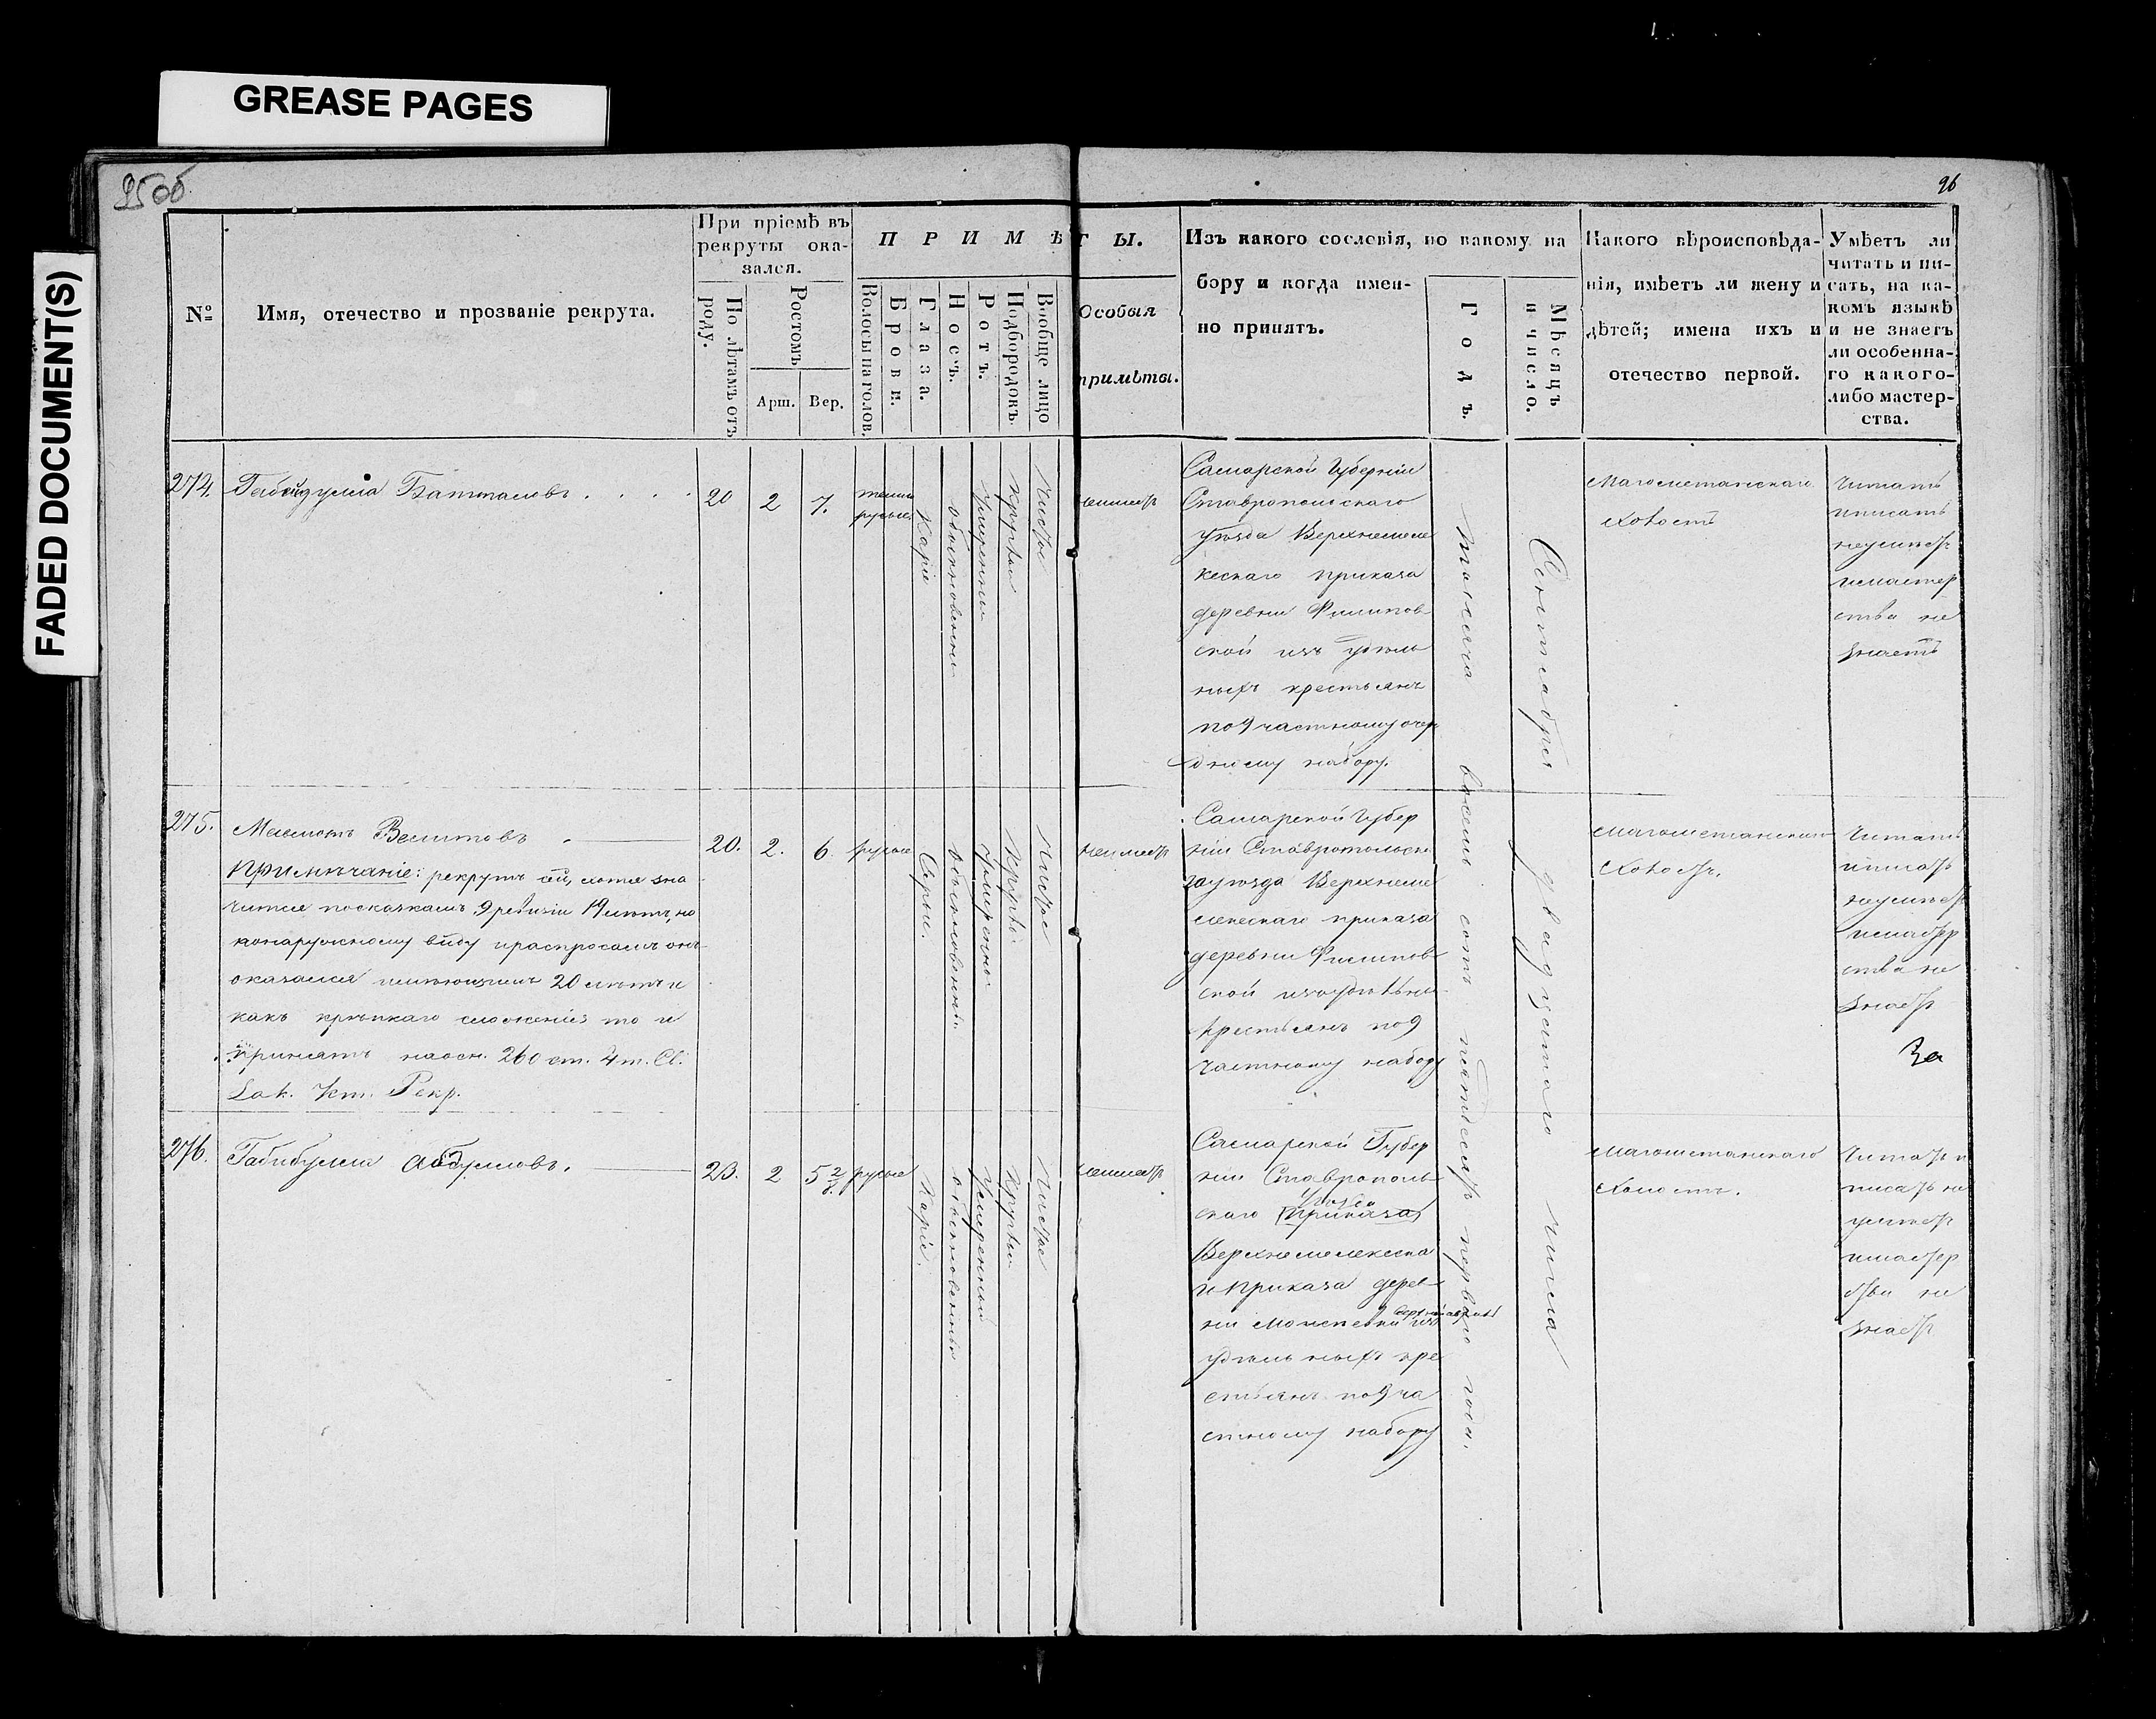 GREASE PAGES
FADED DOCUMENT(S)
96
№
Имя, отечество и прозваніе рекрута.
При пріемѣ въ
рекруты ока-
зался.
По лѣтамъ отъ
роду.
Ростомъ
Арш.
Вер.
П Р И М Ѣ Т Ы.
Волосы на голов.
Брови.
Глаза.
Носъ.
Ротъ.
Подбородокъ.
Вообще лицо
Особыя
примѣты.
Изъ какого сословія, по какому на
бору и когда имен-
но принятъ.
Годъ.
Мѣсяцъ
и число.
Какого вѣроисповѣда-
нія, имѣетъ ли жену и
дѣтей; имена ихъ и
отечество первой.
Умѣетъ ли
читать и пи-
сать, на ка-
комъ языкѣ
и не знаетъ
ли особенна-
го какого-
либо мастер-
ства.
274.
20
2
7.
темно
русые
Каріе
обыкновенны
умеренны
круглы
чистое
неимѣетъ
Самарской Губерніи
Ставропольскаго
уѣзда Верхнемеле
кескаго приказа
деревни Филипов-
ской изъ удѣль
ныхъ крестьянъ
по 9 частному очер
дному набору.
тысяча восемь сотъ пятьдесятъ перваго года.
Сентября двадцатаго числа
Магометанскаго
холостъ
Читать
иписать
неумѣетъ
имастер
ства не
знаетъ
275.
Примѣчаніе: рекрутъ сей, хотя зна
чится посказкамъ 9 ревизіи 19 лѣтъ, но
понаружному виду ираспросамъ онъ
оказался имѣющимъ 20 лѣтъ и
какъ крѣпкаго сложенія то и
принятъ наосн. 260 ст. 4 т. Св.
Зак. Уст. Рекр.
20.
2.
6.
русые
Серые.
обыкновенны.
умеренны.
круглы.
чистое
неимѣетъ
Самарской Губер
ніи Ставропольск
гоуѣзда Верхнеме
лекескаго приказа
деревни Филипов-
ской изъудѣльны
крестьянъ по 9
частному набору
магометанскаго
холостъ.
Читать
иписать
неумѣетъ
имастер
ства не
знаетъ
За
276.
Габибулла Абдуловъ.
23.
2
5 2/8.
русые
Каріе.
обыкновенны
умеренный
круглы
Чистое
неимѣетъ
Самарской Губер
ніи Ставрополь-
скаго приказа
уѣзда
Верхнемелекеска
го Приказа дерев-
удѣльныхъ кре
стьянъ по 9 ча
стному набору
магометанскаго
холостъ.
Читать и
писать не
умѣетъ
имастер
ства не
знаетъ